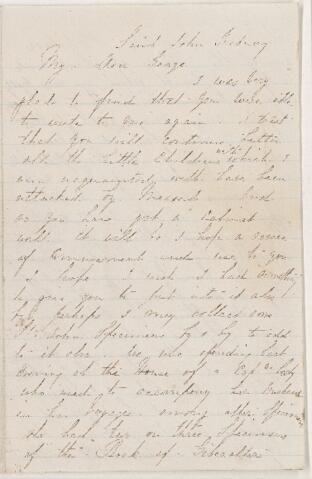 Saint John Friday
My Dear George
I was very
glad to find that you were able
to write to me again. I trust
that you will continue better
all the little Children with which I
am acquainted have been
attacked by Measels And
as you have got a Cabinet
well. it will be I hope a source
of amusement and use to you
I hope I wish I had something
to give you to put into it also
but perhaps I may collect some
St. John Specimens by & by to add
to it also. We were spending last
Evening at the House of a Capn Lady
who used to accompany her Husband
in his Voyages among other Specimens
she had two or three Specimens
of the Rock of Gibraltar